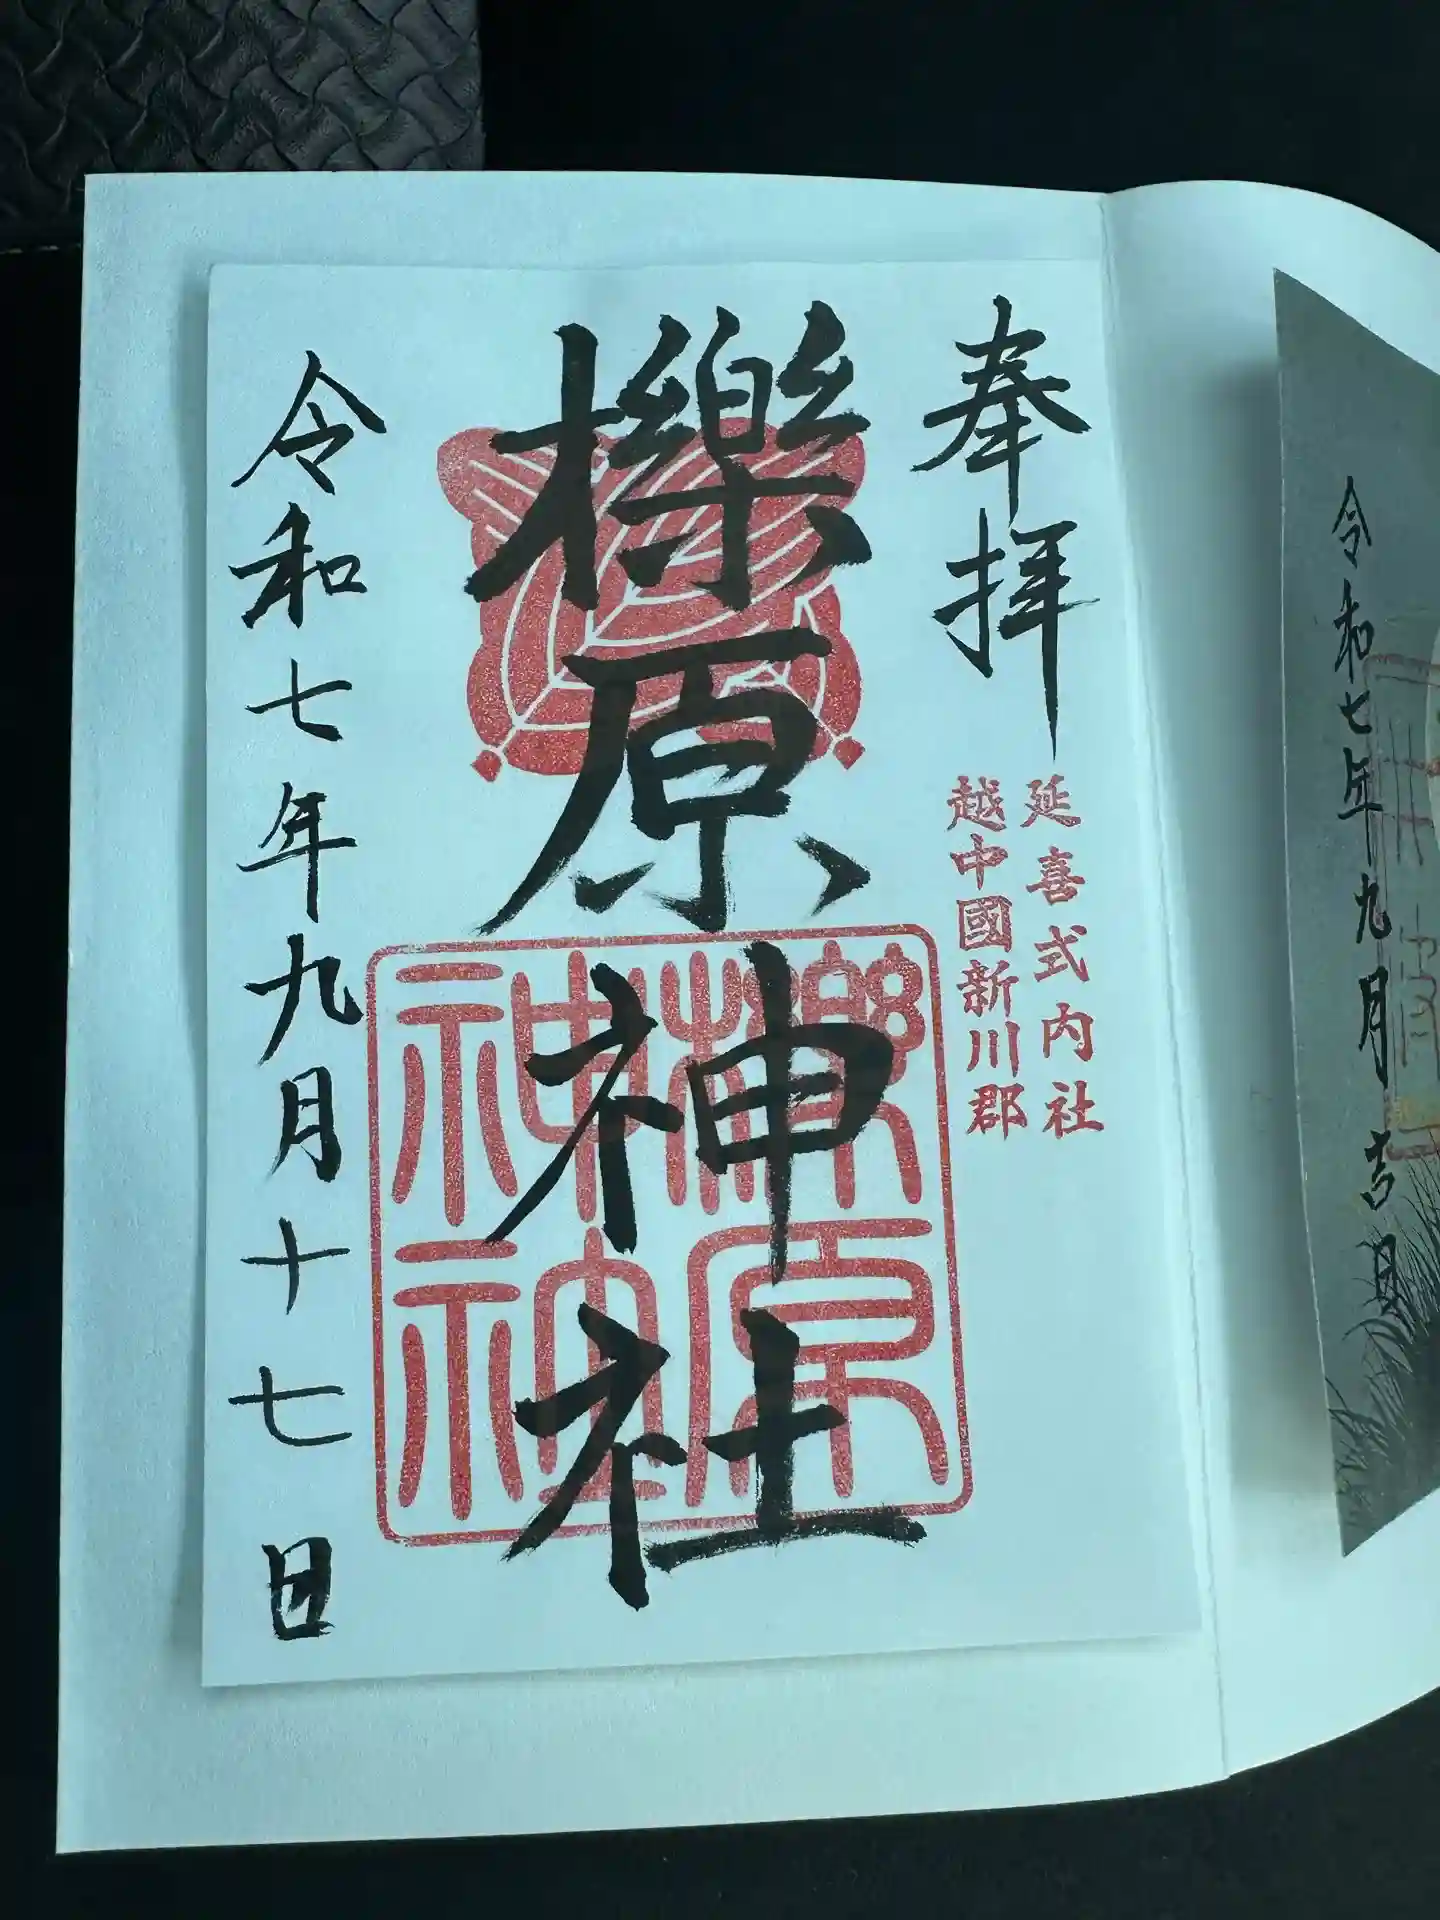 令和七年九月吉日
奉拝
延喜式内社
越中國新川郡
櫟原神社
櫟原
神社
令和七年九月十七日